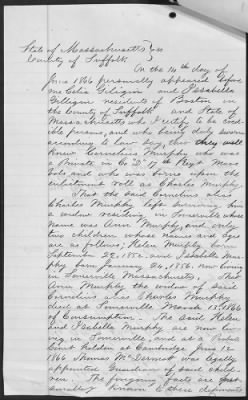 State of Massachusetts } ss
County of Suffolk }
On the 14th day of
June 1866 personally appeared before
me Celia Gilligan and Issabella
Gilligan residents of Boston in
the County of Suffolk and State of
Massachusetts who I certify to be cred-
ible persons, and who being duly sworn
according to law say, that they well
knew Cornelius Murphy who was
a Private in Co "D" 17th Regt Mass
Vols, and who was borne upon the
enlistment roll as Charles Murphy
That the said Cornelius alias
Charles Murphy left surviving him
a widow residing in Somerville whose
name was Ann Murphy, and only
two children whose names and ages
are as follows; Helen Murphy born
September 28, 1852. and Isabella Mur-
phy born January 24, 1856. now living
in Somerville Massachusetts, that
Ann Murphy the widow of said
Cornelius alias Charles Murphy
died at Somerville March 15, 1866
of Consumption. The said Helen
and Isabella Murphy are now liv-
ing in Somerville, and at a Probate
Court holden at Cambridge June 12
1866 Thomas McDermott was legally
appointed Guardian of said chil-
dren. The foregoing facts are per-
sonally known to these deponents